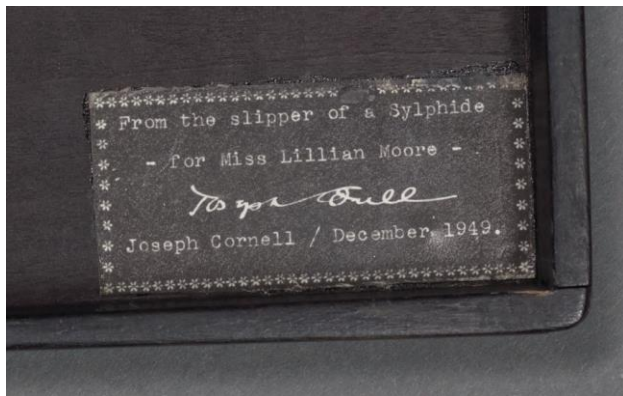 From the slipper of a Sylphide
- for Miss Lillian Moore -
Joseph Cornell
Joseph Cornell / December, 1949.